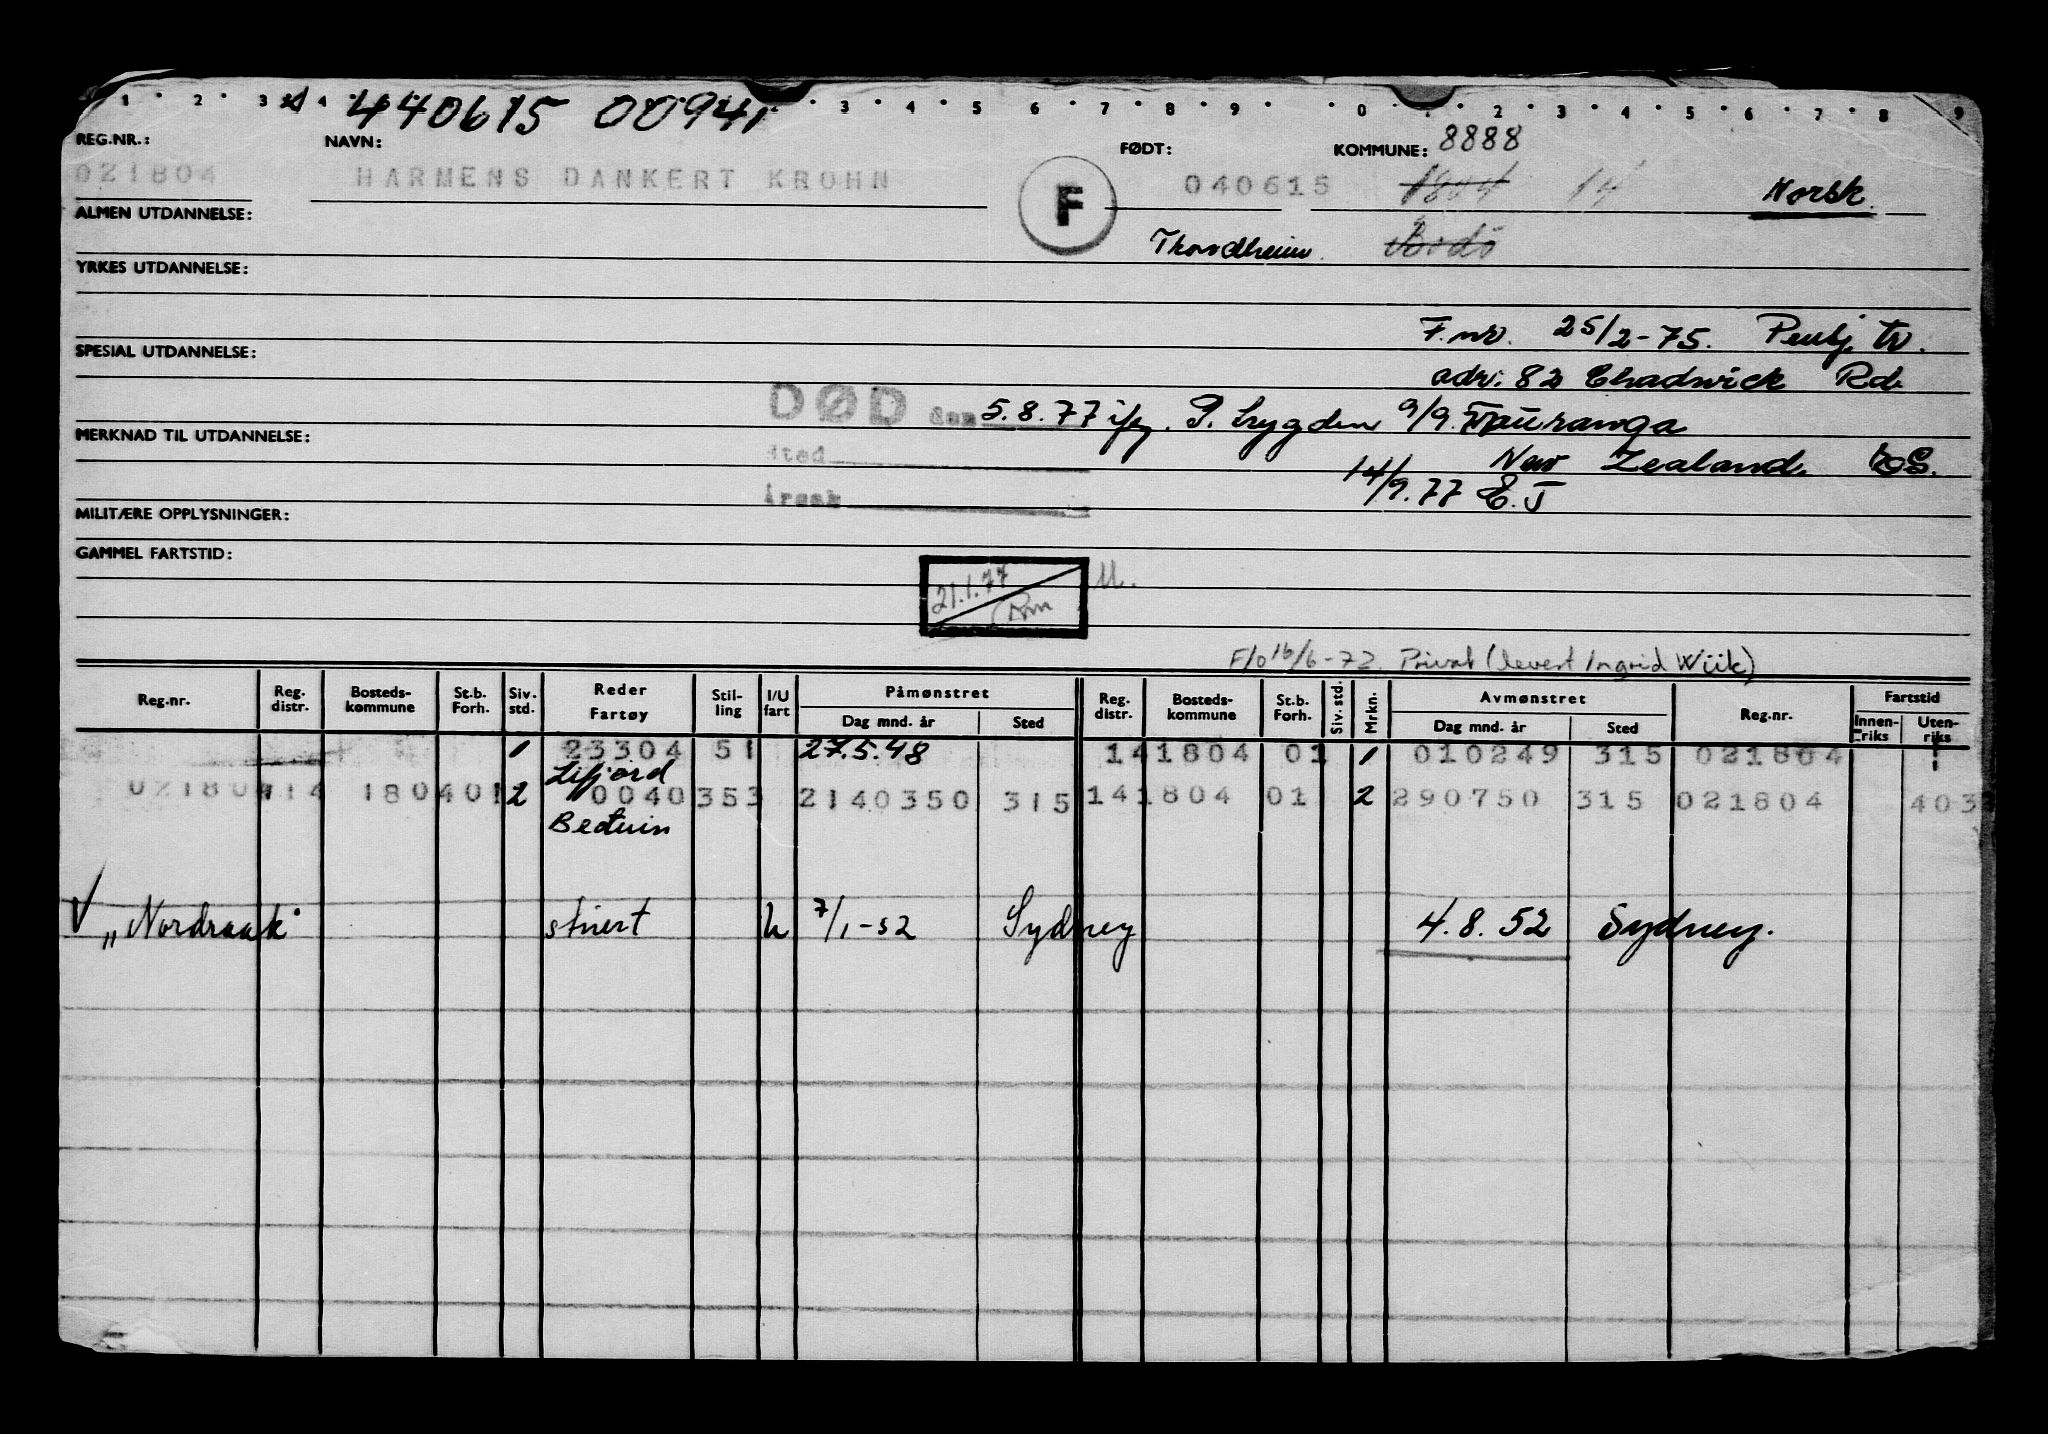 1 · 2 · 3 · 4 440615 00941 · 3 · 4 · 5 6 · 7 · 8 · 9 · 0 · 1 · 2 · 3 · 4 · 5 · 6 · 7 · 8 9
REG.NR.: NAVN: FØDT: KOMMUNE: 8888
021804 HARMENS DANKERT KROHN F 040615 1804 14 Norsk
ALMEN UTDANNELSE:
Thorndheim. Bodö
YRKES UTDANNELSE:
F.nr. 25/2-75. Pensj. tr.
SPESIAL UTDANNELSE:
adr: 82 Chadwick Rd.
DØD den 5.8.77 ifg. P. trygden 9/9. Tauranga
MERKNAD TIL UTDANNELSE:
sted New Zealand.
Årsak 14/9.77 E.J
MILITÆRE OPPLYSNINGER:
GAMMEL FARTSTID:
21.1.77 M.
F/o 16/6-72. Privat (levert Ingrid Wiik)
Reg.nr. Reg. distr. Bosteds- kommune St.b. Forh. Siv. std. Reder Fartøy Stil- ling I/U fart Påmønstret Dag mnd. år Sted Reg. distr. Bosteds- kommune St.b. Forh. Siv. std. Mrkn. Avmønstret Dag mnd. år Sted Reg.nr. Fartstid Innen- riks Uten- riks
1 23304 51 27.5.48 141804 01 1 010249 315 021804
Lifjord
021804 14 1804 01 2 0040 353 2140350 315 141804 01 2 290750 315 021804 403
Beduin
V „Nordraak" stuert u 7/1-52 Sydney 4.8.52 Sydney.